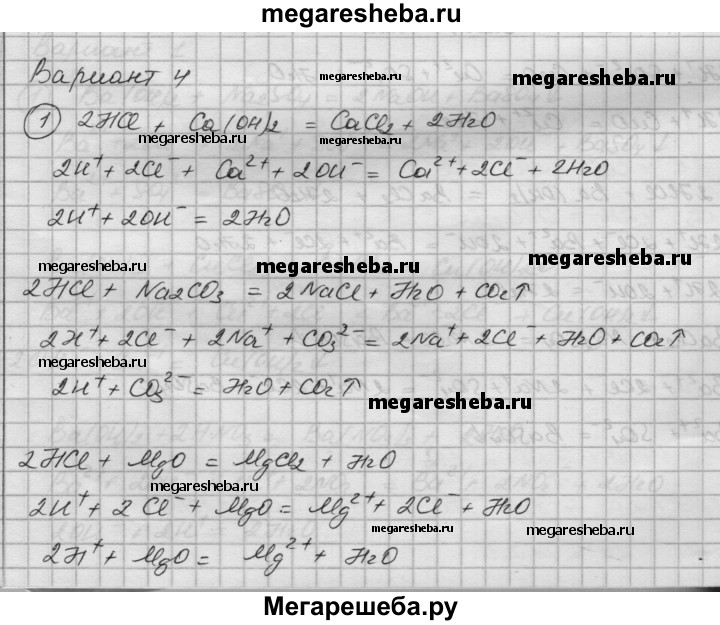 megaresheba.ru
Вариант 4 megaresheba.ru megaresheba.ru
1) 2HCl + Ca(OH)2 = CaCl2 + 2H2O
megaresheba.ru megaresheba.ru
2H⁺ + 2Cl⁻ + Ca²⁺ + 2OH⁻ = Ca²⁺ + 2Cl⁻ + 2H2O
2H⁺ + 2OH⁻ = 2H2O
megaresheba.ru megaresheba.ru megaresheba.ru
2HCl + Na2CO3 = 2NaCl + H2O + CO2↑
2H⁺ + 2Cl⁻ + 2Na⁺ + CO3²⁻ = 2Na⁺ + 2Cl⁻ + H2O + CO2↑
2H⁺ + CO3²⁻ = H2O + CO2↑
megaresheba.ru
2HCl + MgO = MgCl2 + H2O
megaresheba.ru
2H⁺ + 2Cl⁻ + MgO = Mg²⁺ + 2Cl⁻ + H2O
megaresheba.ru megaresheba.ru
2H⁺ + MgO = Mg²⁺ + H2O
Мегарешеба.ру